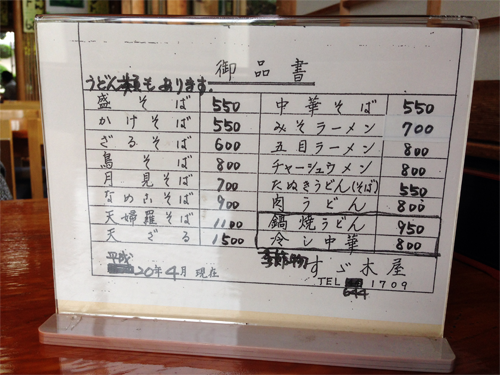 御品書
うどん類もあります。
盛そば 550
かけそば 550
ざるそば 600
鳥そば 800
月見そば 700
なめこそば 900
天婦羅そば 1100
天ざる 1500
中華そば 550
みそラーメン 700
五目ラーメン 800
チャーシュウメン 800
たぬきうどん(そば) 550
肉うどん 800
鍋焼うどん 950
冷し中華 800
平成20年4月現在
季節物
すゞ木屋
TEL 644 1709